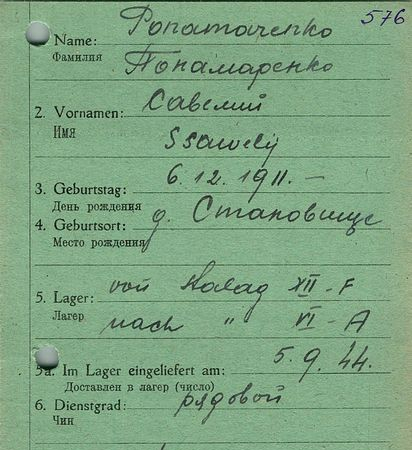 576
Name: Ponamarenko
Фамилия Понамаренко
2. Vornamen: Савелий
Имя Ssawelij
3. Geburtstag: 6.12.1911. –
День рождения
4. Geburtsort: д. Становище
Место рождения
5. Lager: von Stalag XII-F
Лагер nach " VI-A
5a. Im Lager eingeliefert am: 5.9.44.
Доставлен в лагер (число)
6. Dienstgrad: рядовой
Чин